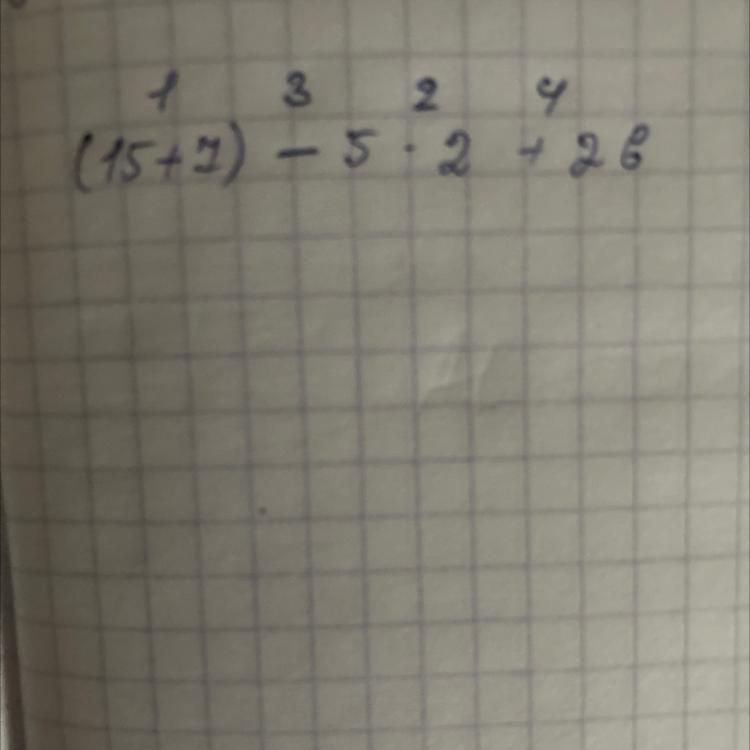 1 3 2 4
(15+7) - 5 · 2 + 26